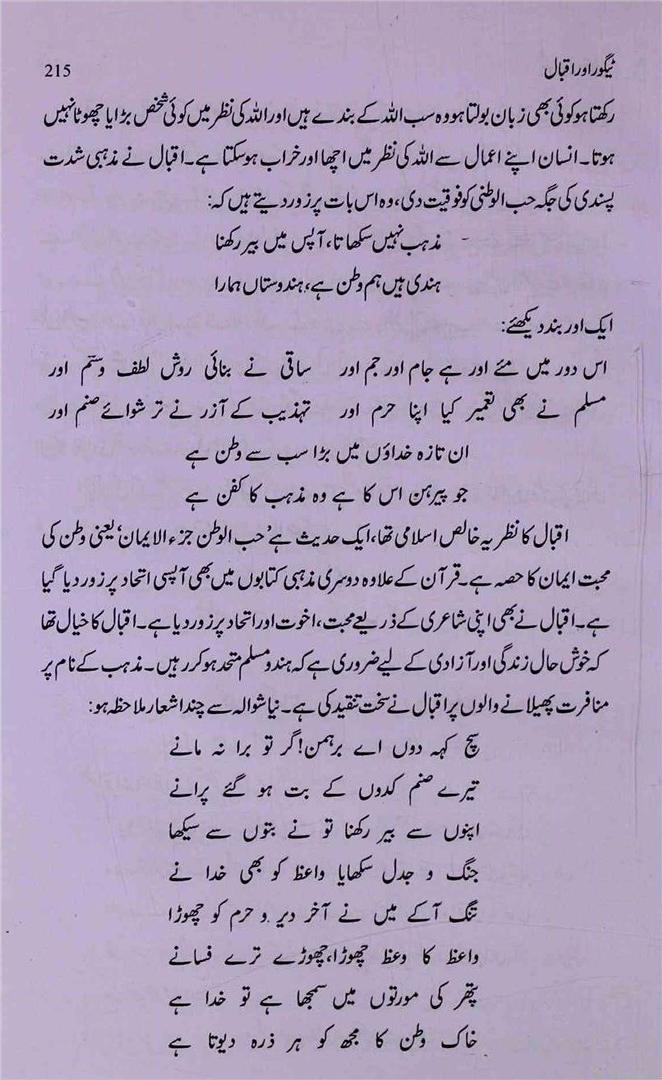 ٹیگور اور اقبال 215
رکھتا ہو کوئی بھی زبان بولتا ہو وہ سب اللہ کے بندے ہیں اور اللہ کی نظر میں کوئی شخص بڑا یا چھوٹا نہیں
ہوتا۔ انسان اپنے اعمال سے اللہ کی نظر میں اچھا اور خراب ہو سکتا ہے۔ اقبال نے مذہبی شدت
پسندی کی جگہ حب الوطنی کو فوقیت دی، وہ اس بات پر زور دیتے ہیں کہ:
مذہب نہیں سکھاتا، آپس میں بیر رکھنا
ہندی ہیں ہم وطن ہے، ہندوستاں ہمارا
ایک اور بند دیکھئے:
اس دور میں مئے اور ہے جام اور جم اور ساقی نے بنائی روش لطف وستم اور
مسلم نے بھی تعمیر کیا اپنا حرم اور تہذیب کے آزر نے تر شوائے صنم اور
ان تازہ خداؤں میں بڑا سب سے وطن ہے
جو پیرہن اس کا ہے وہ مذہب کا کفن ہے
اقبال کا نظریہ خالص اسلامی تھا، ایک حدیث ہے ’حب الوطن جزء الایمان‘ یعنی وطن کی
محبت ایمان کا حصہ ہے۔ قرآن کے علاوہ دوسری مذہبی کتابوں میں بھی آپسی اتحاد پر زور دیا گیا
ہے۔ اقبال نے بھی اپنی شاعری کے ذریعے محبت، اخوت اور اتحاد پر زور دیا ہے۔ اقبال کا خیال تھا
کہ خوش حال زندگی اور آزادی کے لیے ضروری ہے کہ ہندو مسلم متحد ہو کر رہیں۔ مذہب کے نام پر
منافرت پھیلانے والوں پر اقبال نے سخت تنقید کی ہے۔ نیا شوالہ سے چند اشعار ملاحظہ ہو:
سچ کہہ دوں اے برہمن! گر تو برا نہ مانے
تیرے صنم کدوں کے بت ہو گئے پرانے
اپنوں سے بیر رکھنا تو نے بتوں سے سیکھا
جنگ و جدل سکھایا واعظ کو بھی خدا نے
تنگ آکے میں نے آخر دیر و حرم کو چھوڑا
واعظ کا وعظ چھوڑا، چھوڑے ترے فسانے
پتھر کی مورتوں میں سمجھا ہے تو خدا ہے
خاک وطن کا مجھ کو ہر ذرہ دیوتا ہے